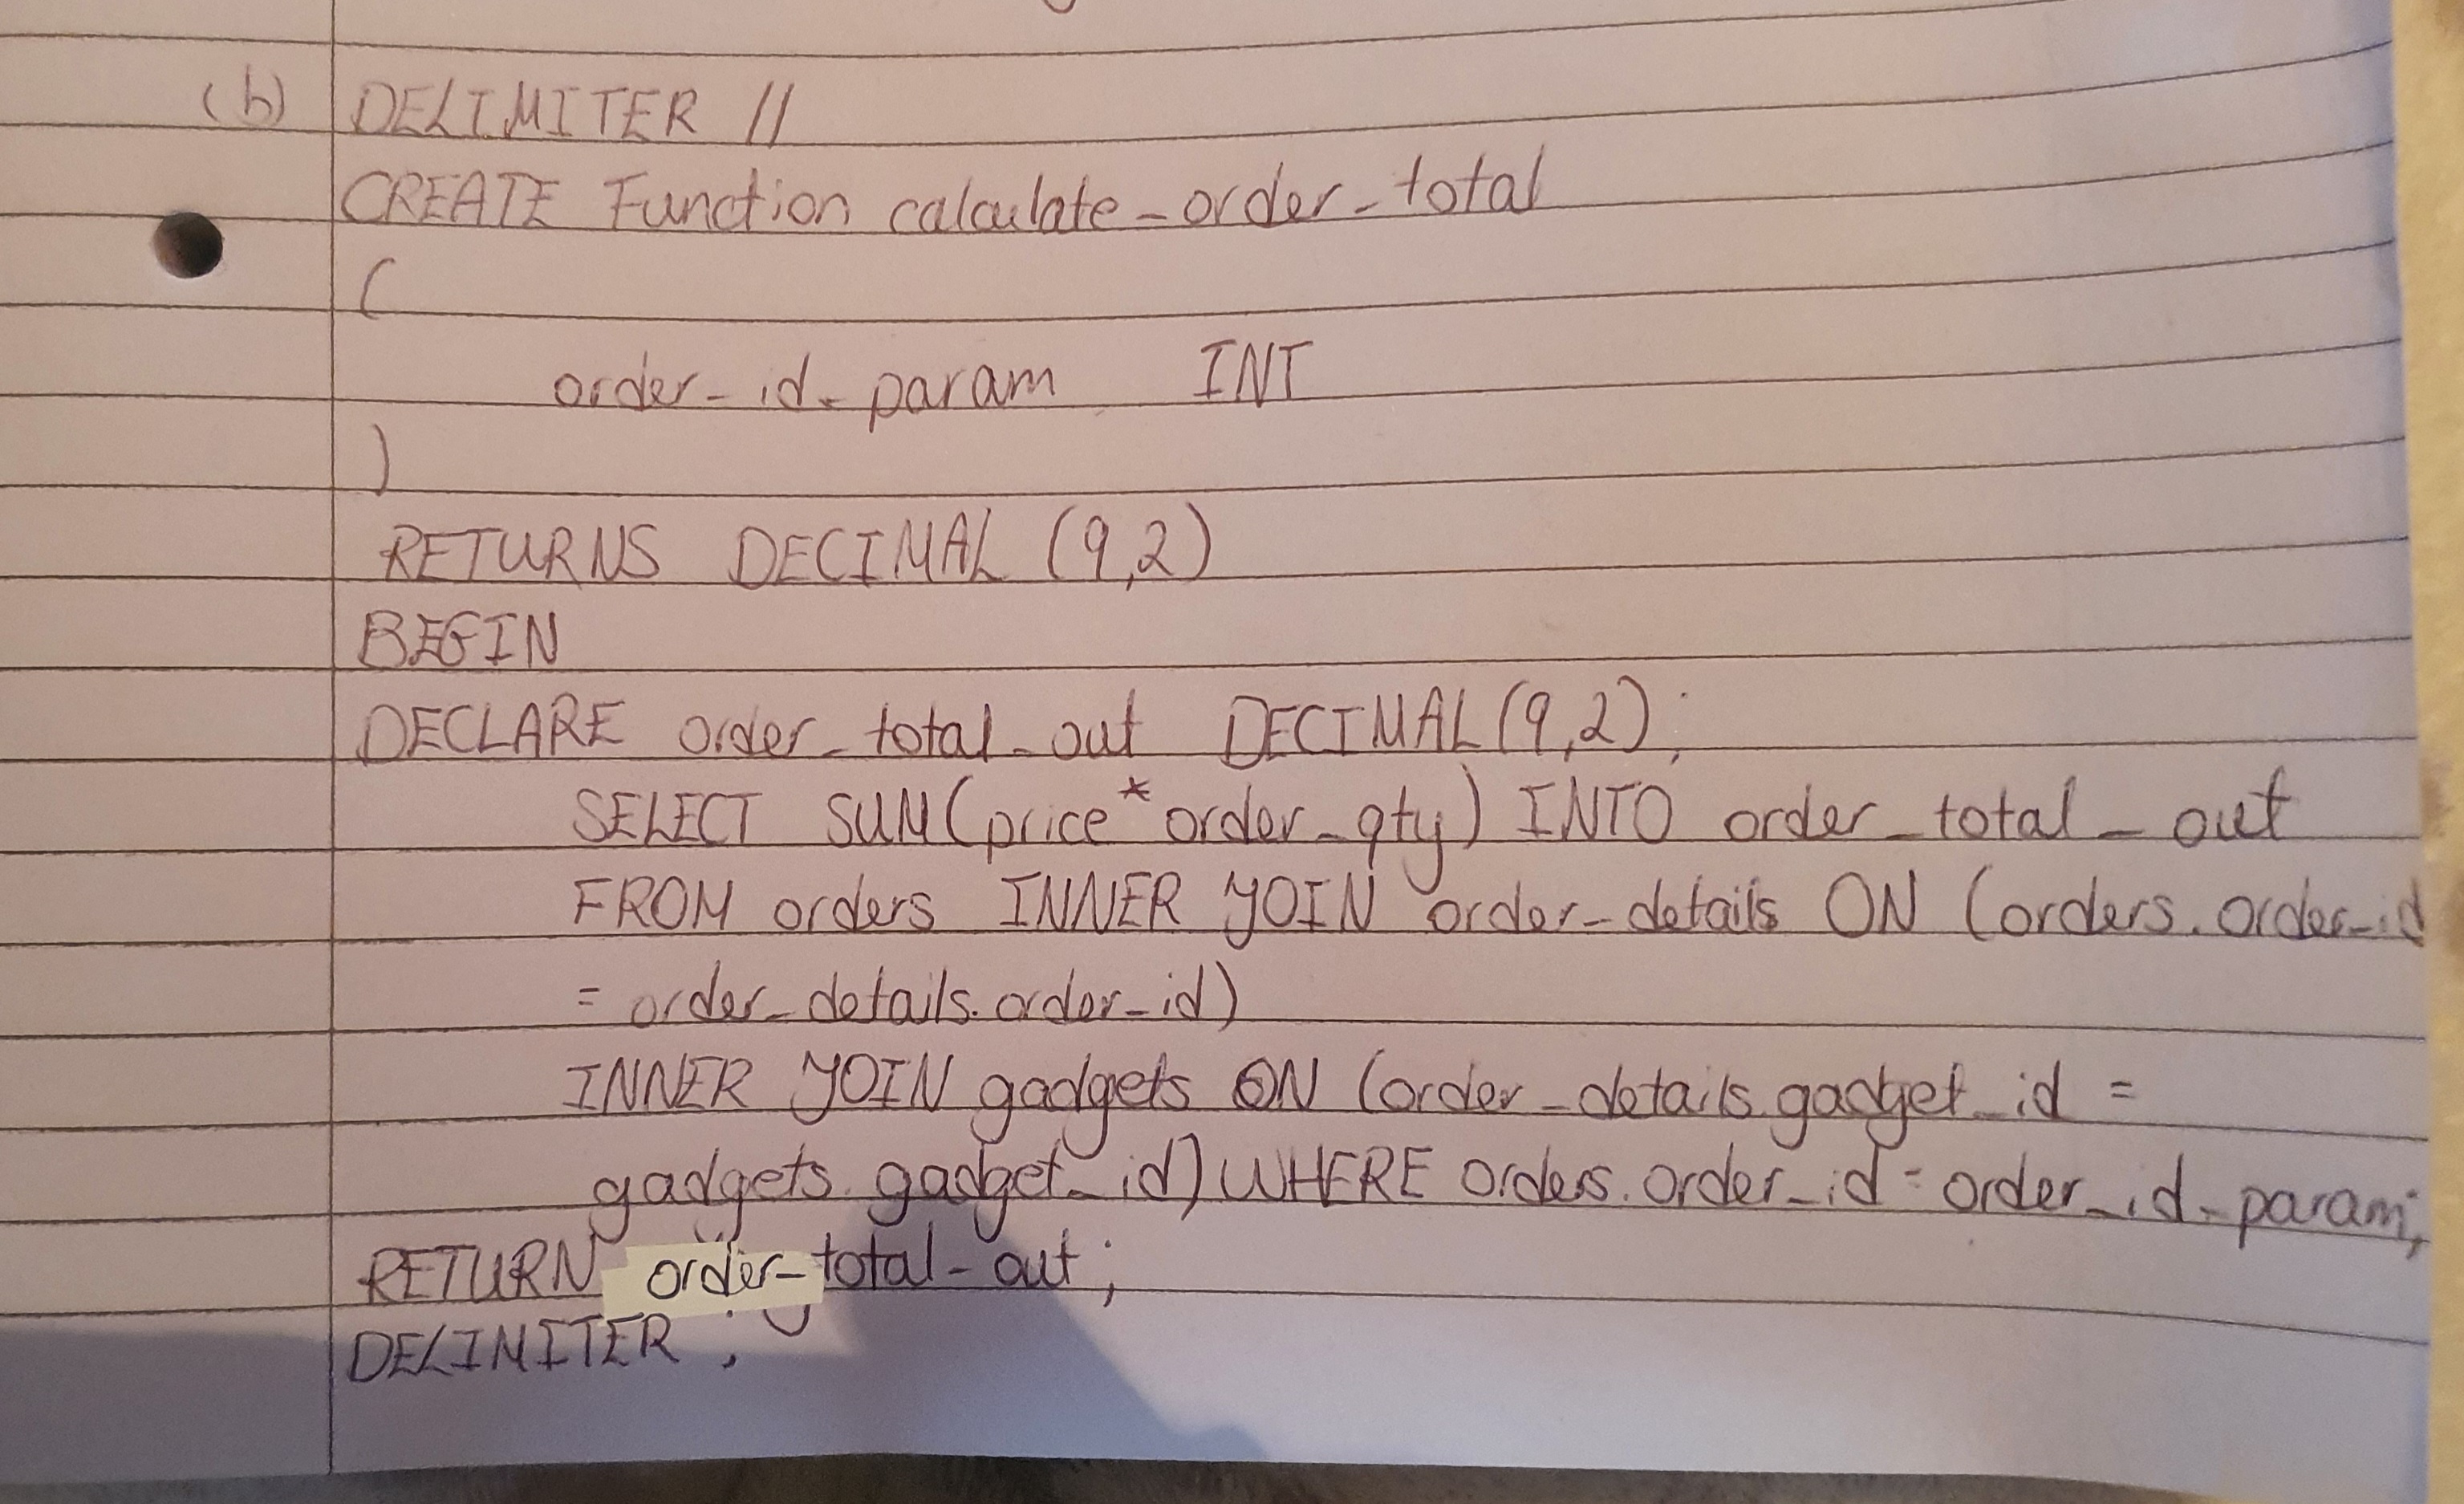 (b) DELIMITER //
CREATE Function calculate_order_total
(
order_id_param INT
)
RETURNS DECIMAL (9,2)
BEGIN
DECLARE order_total_out DECIMAL(9,2);
SELECT SUM(price*order_qty) INTO order_total_out
FROM orders INNER JOIN order_details ON (orders.order_id
= order_details.order_id)
INNER JOIN gadgets ON (order_details.gadget_id =
gadgets.gadget_id) WHERE orders.order_id = order_id_param;
RETURN order_total_out;
DELIMITER ;